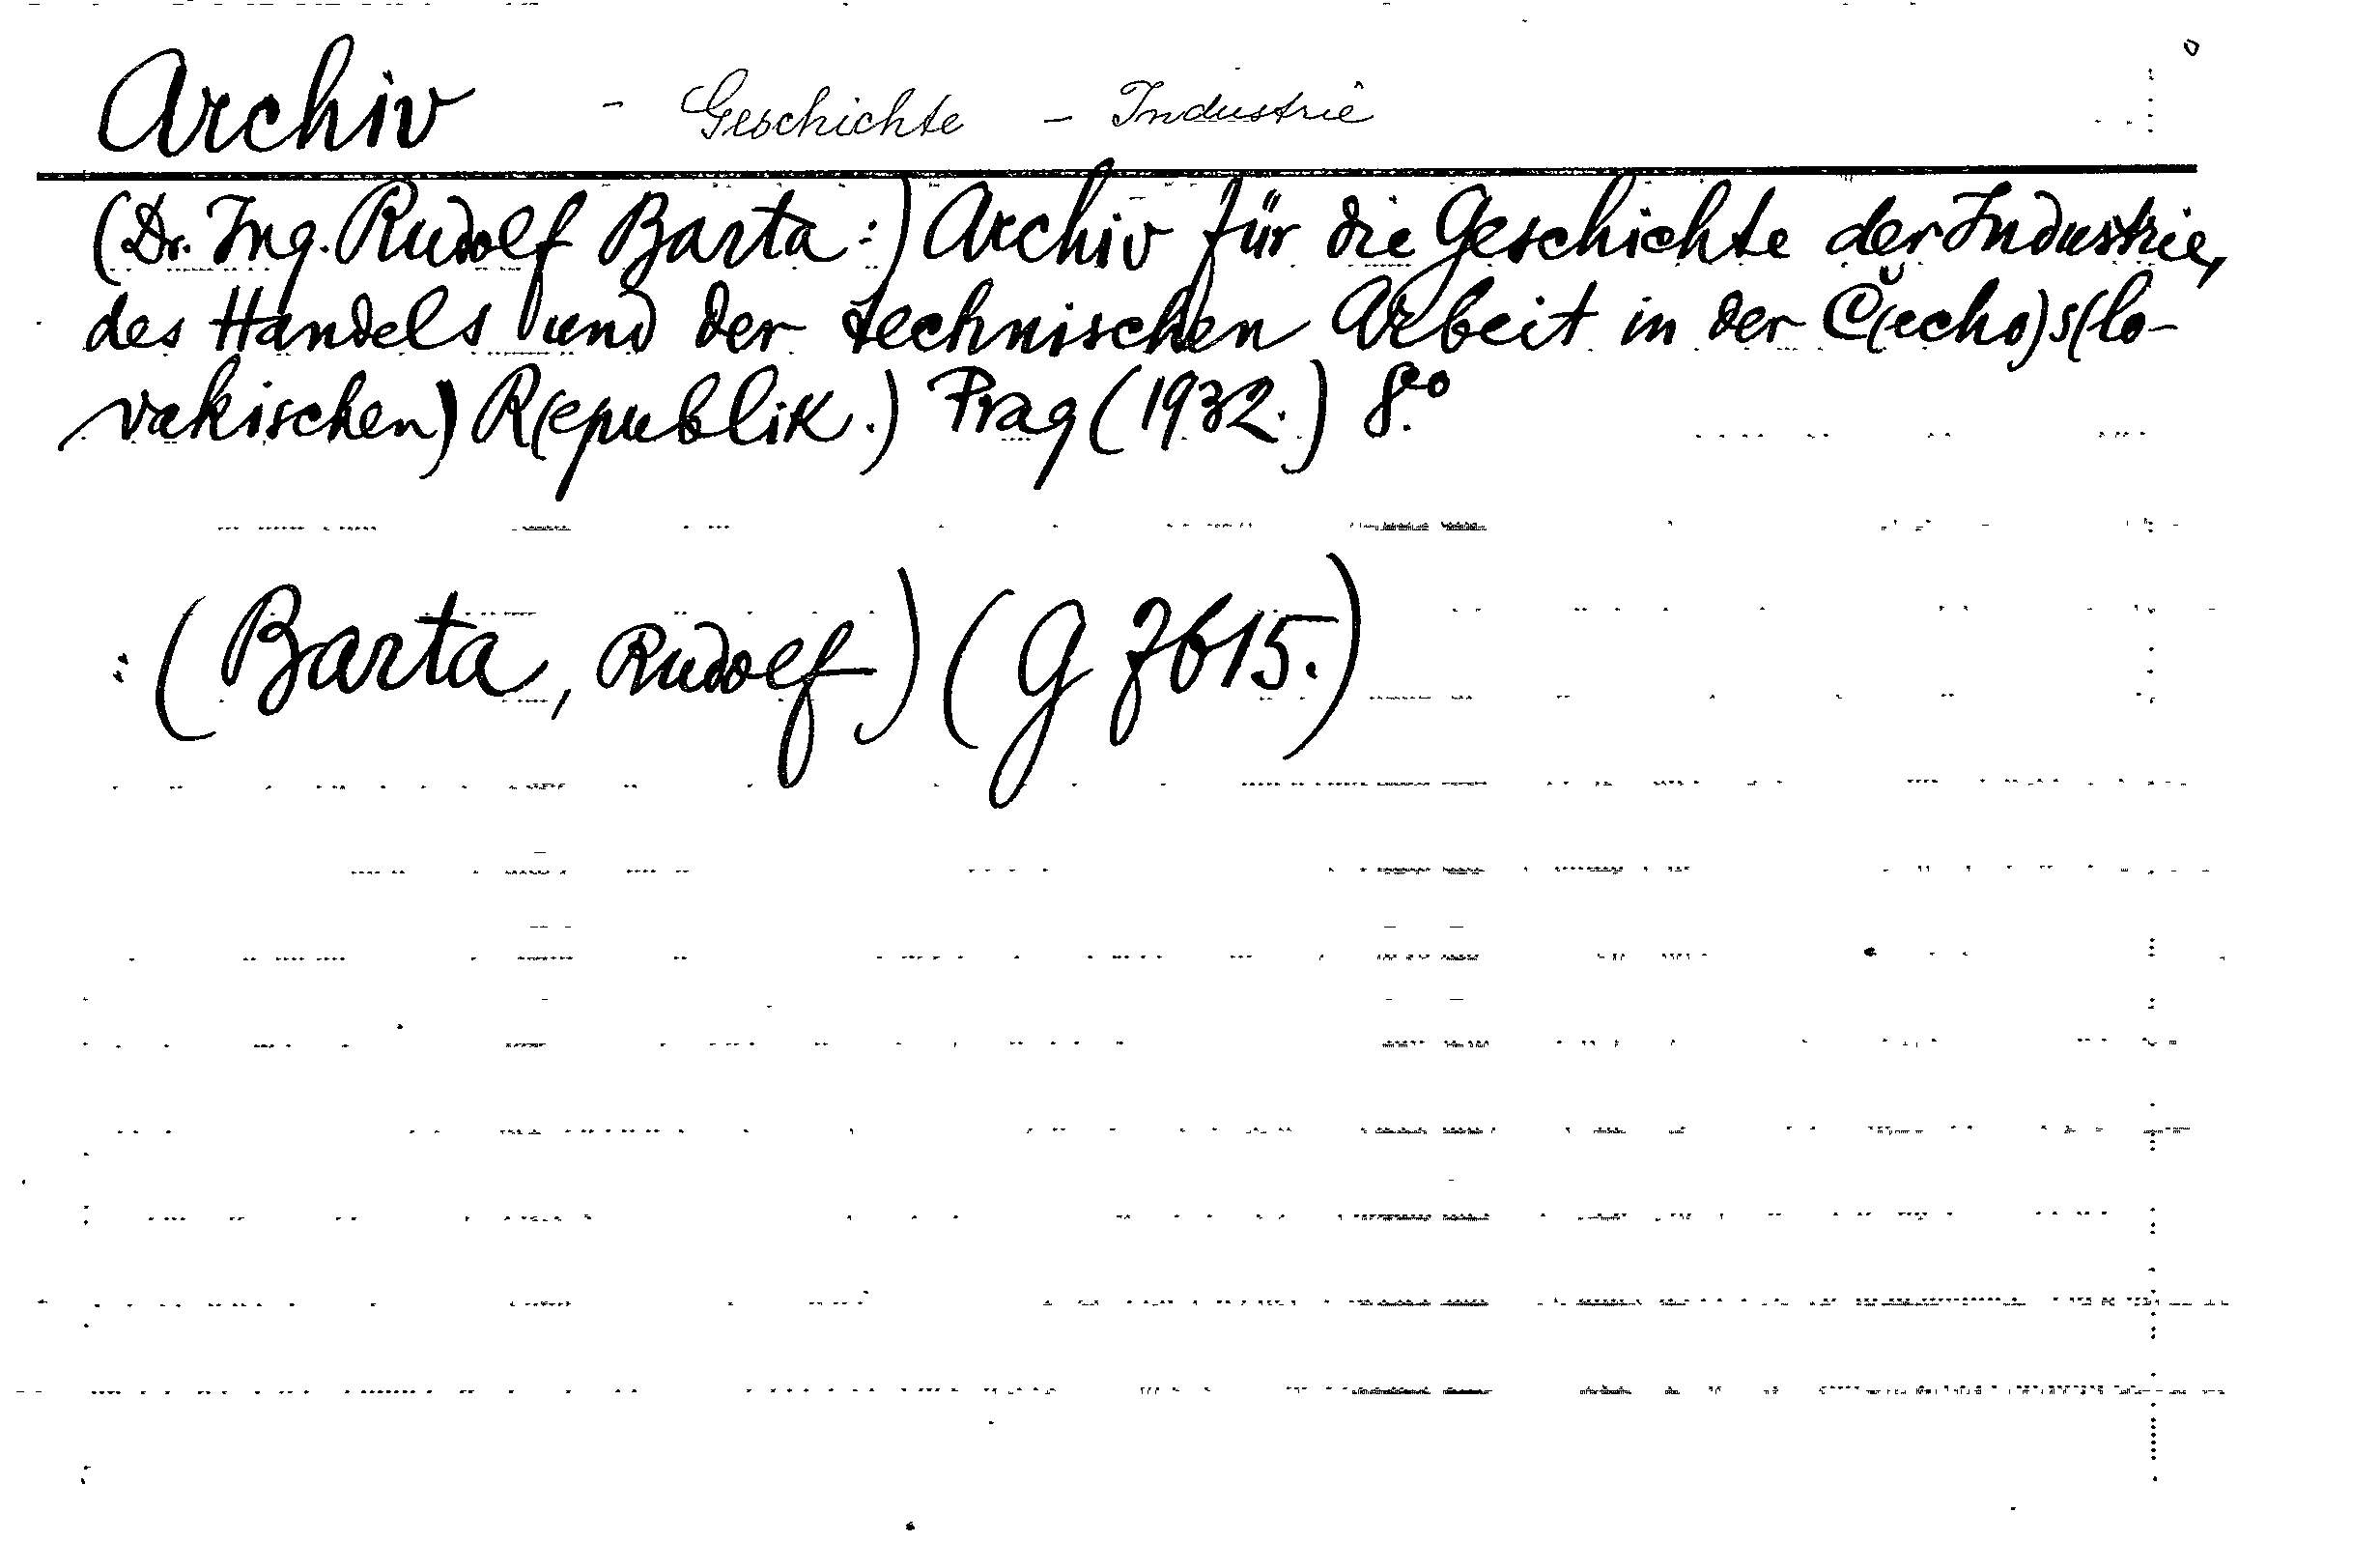 Archiv - Geschichte - Industrie
(Dr. Ing. Rudolf Barta:) Archiv für die Geschichte der Industrie,
des Handels und der technischen Arbeit in der Č(echo)s(lo-
vakischen) R(epublik.) Prag (1932.) 8.°
: (Barta, Rudolf) (G 7615.)